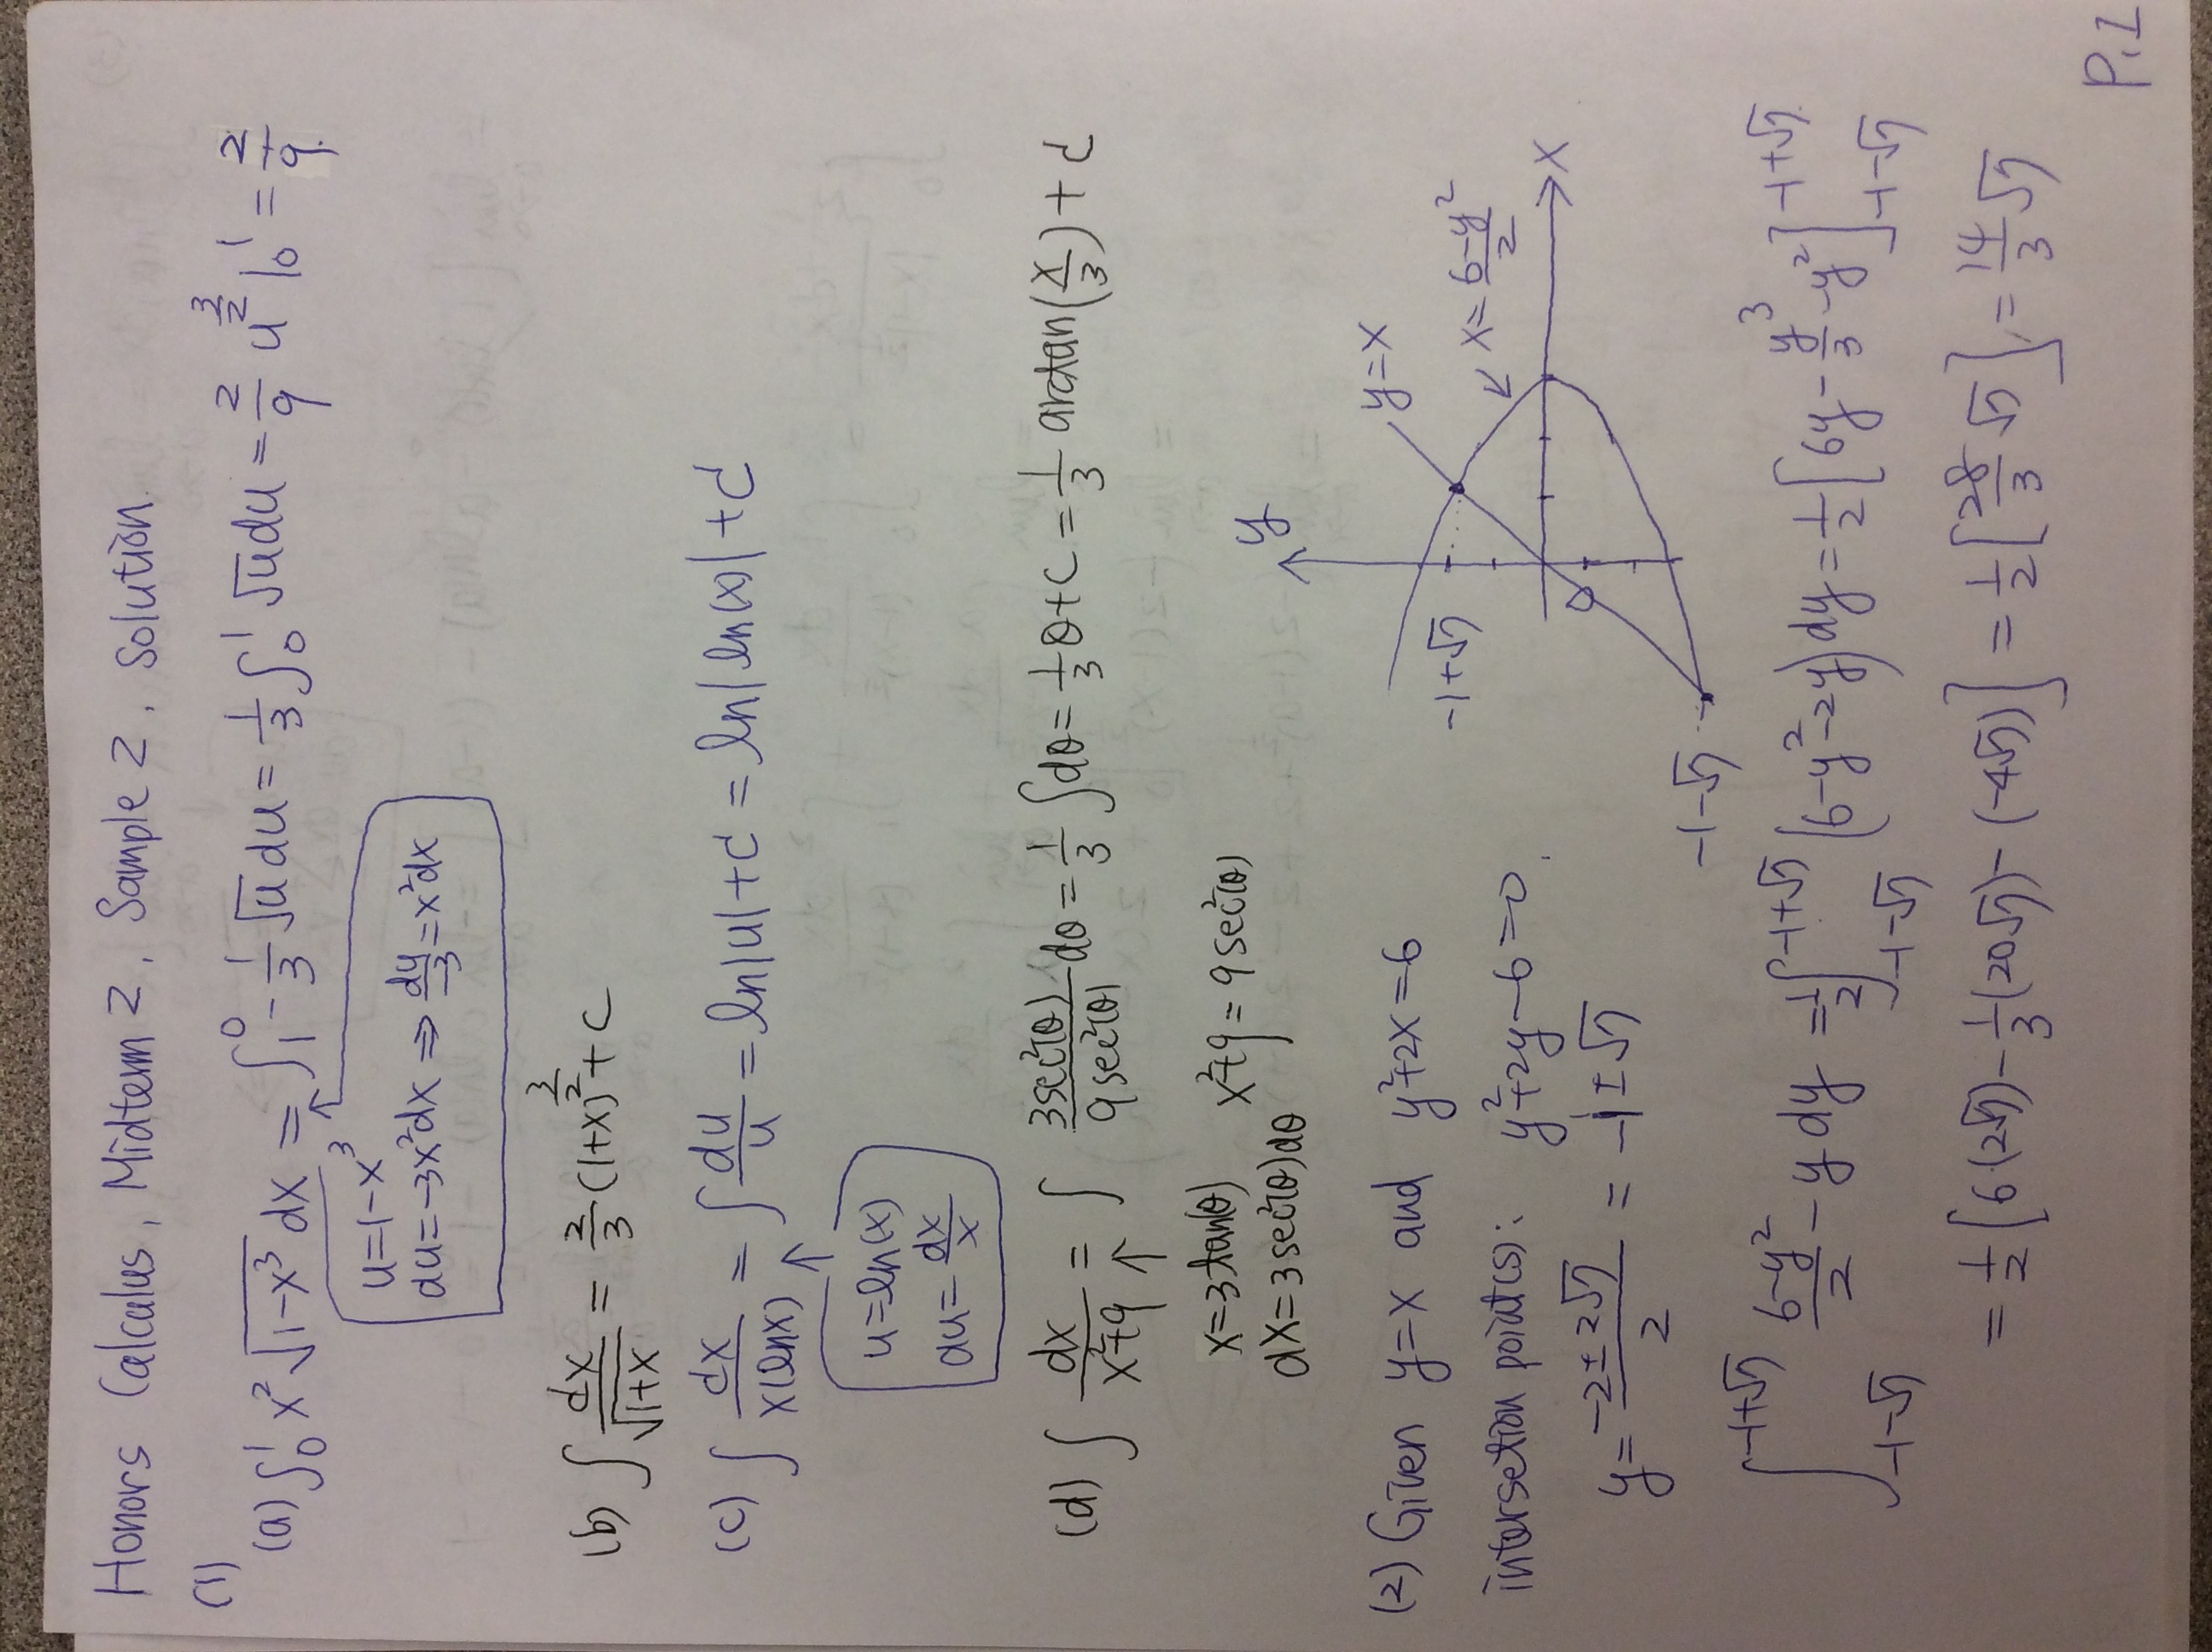 Honors Calculus, Midterm 2, Sample 2, Solution.
(1)
(a) ∫₀¹ x²√(1-x³) dx = ∫₁⁰ -1/3 √u du = 1/3 ∫₀¹ √u du = 2/9 u^(3/2) |₀¹ = 2/9.
u=1-x³
du=-3x²dx ⇒ du/-3=x²dx
(b) ∫ dx/√(1+x) = 2/3 (1+x)^(3/2) + C
(c) ∫ dx/(x(lnx)) = ∫ du/u = ln|u|+C = ln|ln(x)|+C
u=ln(x)
du=dx/x
(d) ∫ dx/(x²+9) = ∫ 3sec²(θ)/9sec²(θ) dθ = 1/3 ∫dθ = 1/3 θ+C = 1/3 arctan(x/3)+C
x=3tan(θ) x²+9=9sec²(θ)
dx=3sec²(θ)dθ
y
(2) Given y=x and y²+2x=6
y=x
-1+√7
x=(6-y²)/2
intersetion point(s): y²+2y-6=0.
x
O
y=(-2±2√7)/2 = -1±√7
-1-√7
∫_{-1-√7}^{-1+√7} (6-y²)/2 - y dy = 1/2 ∫_{-1-√7}^{-1+√7} (6-y²-2y) dy = 1/2 [6y - y³/3 - y²]_{-1-√7}^{-1+√7}
= 1/2 [6(2√7) - 1/3(20√7) - (-4√7)] = 1/2 [28/3 √7] = 14/3 √7
P.1